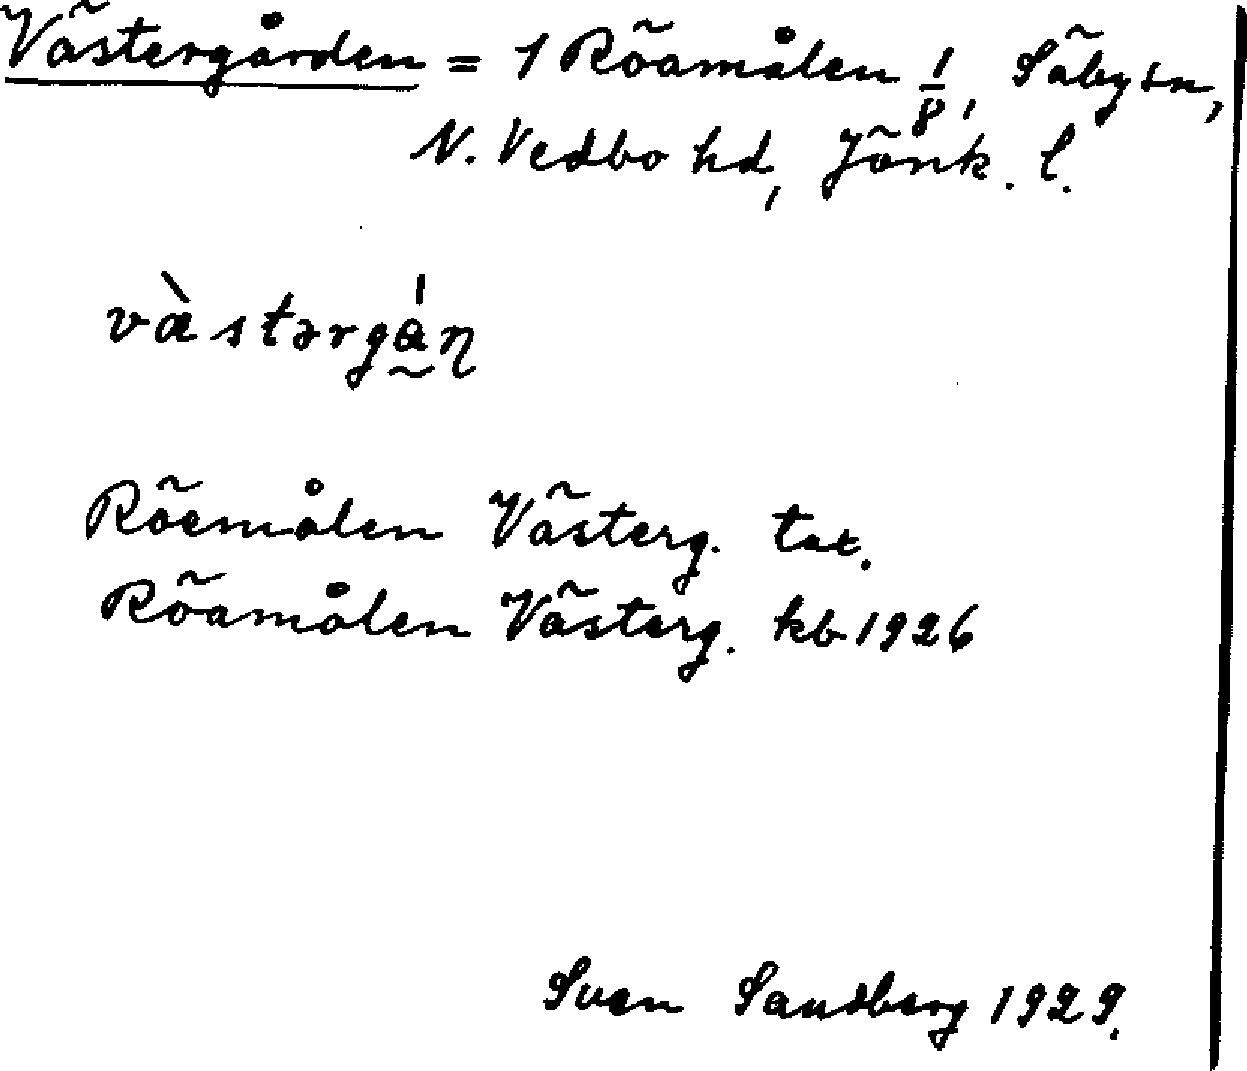 Västergården = 1 Röamålen 1/8, Säby sn,
N. Vedbo hd, Jönk. l.
västərgán
Röemålen Västerg. tax.
Röamålen Västerg. kb 1926
Sven Sandberg 1929.